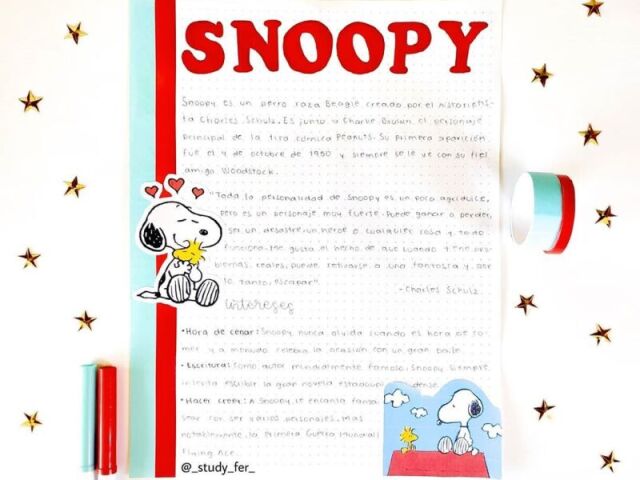 SNOOPY
Snoopy es un perro raza Beagle creado por el historietis-
ta Charles Schulz. Es junto a Charlie Brown el personaje
principal de la tira cómica Peanuts. Su primera aparición
fue el 4 de octubre de 1950 y siempre se le ve con su fiel
amigo Woodstock.
"Toda la personalidad de Snoopy es un poco agridulce,
pero es un personaje muy fuerte. Puede ganar o perder,
ser un desastre, un héroe o cualquier cosa y todo
funciona. Me gusta el hecho de que cuando tiene pro-
blemas reales, puede retirarse a una fantasía y por
lo tanto, escapar"
-Charles Schulz.
Intereses
•Hora de cenar: Snoopy nunca olvida cuando es hora de co-
mer y a menudo celebra la ocasión con un gran baile.
•Escritura: Como autor mundialmente famoso, Snoopy siempre
intenta escribir la gran novela estadouni dense.
•Hacer creer: A Snoopy le encanta fanta
sear con ser varios personajes, más
notablemente, la Primera Guerra Mundial
Flying Ace.
@_study_fer_